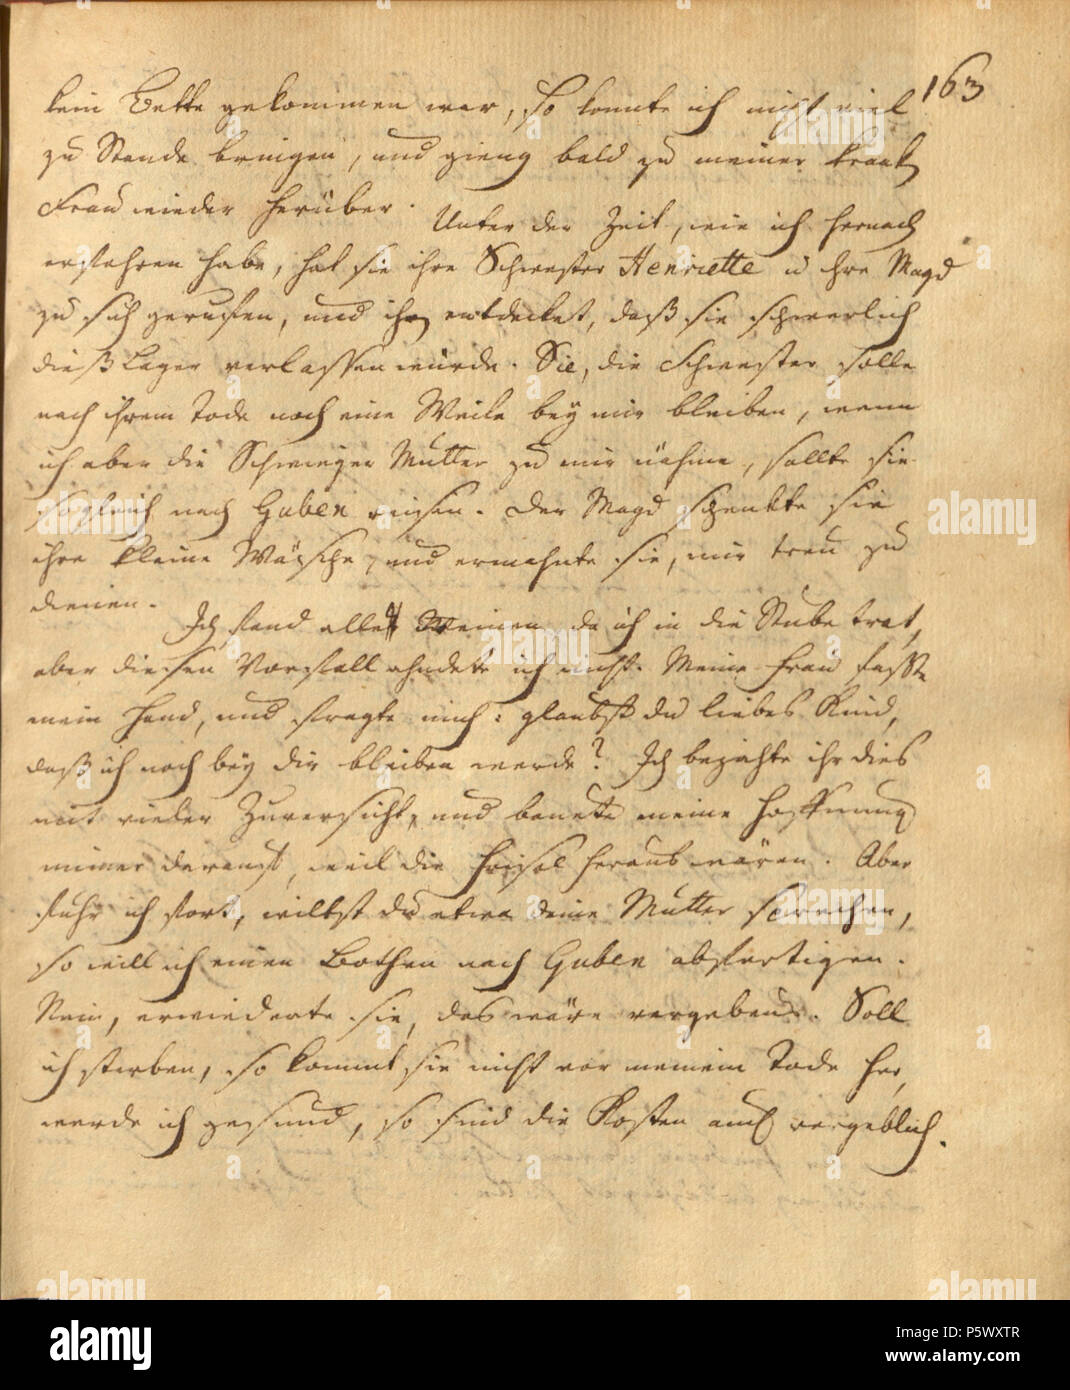 163
kein Bette gekommen war, so konnte ich nicht viel
zu Stande bringen, und gieng bald zu meiner krank
Frau wieder herüber. Unter der Zeit, wie ich hernach
erfahren habe, hat sie ihre Schwester Henriette u ihre Magd
zu sich gerufen, und ihn entdecket, daß sie schwerlich
dieß Lager verlassen würde. Sie, die Schwester solle
nach ihrem Tode noch eine Weile bey mir bleiben, wenn
ich aber die Schwieger Mutter zu mir nähme, sollte sie
sogleich nach Guben reisen. Der Magd schenkte sie
ihre kleine Wäsche, und ermahnte sie, mir treu zu
dienen. Ich fand alles Weinen da ich in die Stube trat,
aber diesen Vorfall ahndete ich nicht. Meine Frau faßte
mein Hand, und fragte mich: glaubst du liebes Kind,
daß ich noch bey dir bleiben werde? Ich bejahte ihr dies
mit vieler Zuversicht, und bauete meine Hoffnung
immer darauf, weil die Frisel heraus wären. Aber
fuhr ich fort, willst du etwa deine Mutter sprechen,
so will ich einen Bothen nach Guben abfertigen.
Nein, erwiederte sie, das wäre vergebens. Soll
ich sterben, so kommt sie nicht vor meinem Tode her,
werde ich gesund, so sind die Kosten auch vergeblich.
alamy
Image ID: P5WXTR
www.alamy.com